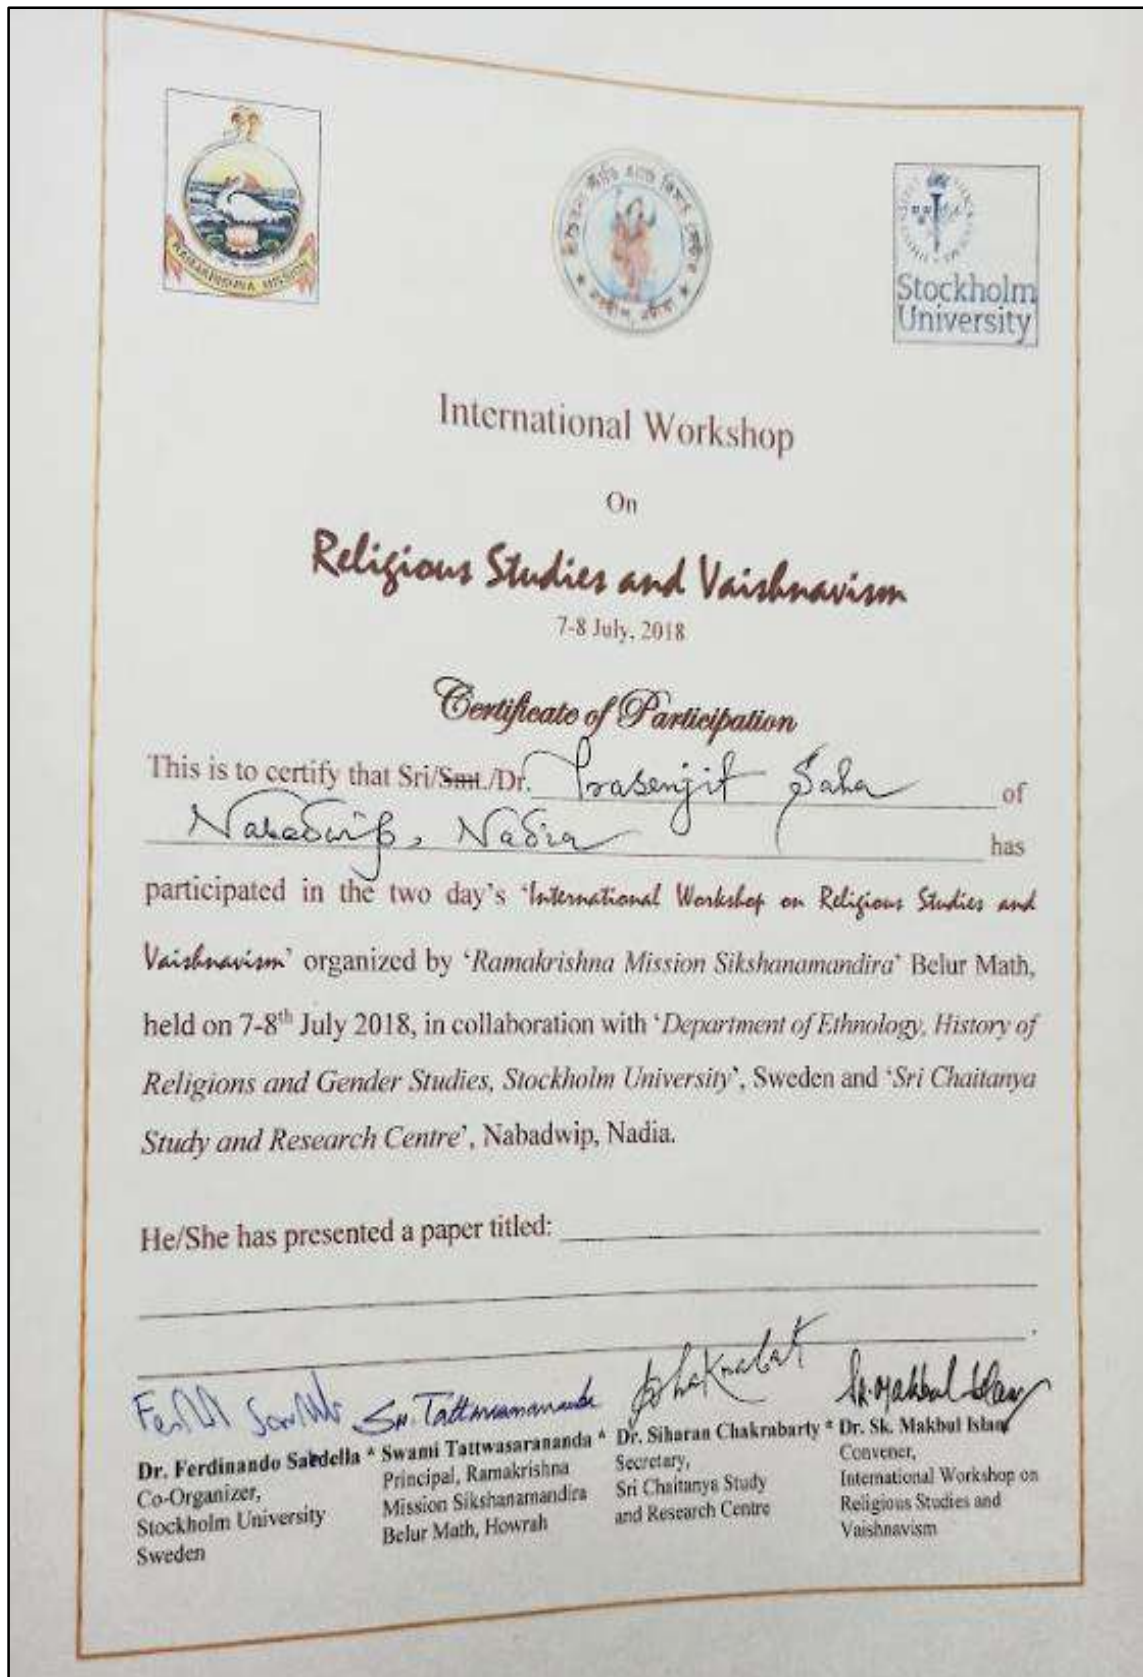 RAMAKRISHNA MISSION
Stockholm
University
International Workshop
On
Religious Studies and Vaishnavism
7-8 July, 2018
Certificate of Participation
This is to certify that Sri/Smt./Dr. Prasenjit Saha of
Nabadwip, Nadia has
participated in the two day's 'International Workshop on Religious Studies and
Vaishnavism' organized by 'Ramakrishna Mission Sikshanamandira' Belur Math,
held on 7-8th July 2018, in collaboration with 'Department of Ethnology, History of
Religions and Gender Studies, Stockholm University', Sweden and 'Sri Chaitanya
Study and Research Centre', Nabadwip, Nadia.
He/She has presented a paper titled:
Sw. Tattwasarananda Sk. Makbul Islam
Dr. Ferdinando Sardella * Swami Tattwasarananda * Dr. Siharan Chakrabarty * Dr. Sk. Makbul Islam
Co-Organizer,
Stockholm University
Sweden
Principal, Ramakrishna
Mission Sikshanamandira
Belur Math, Howrah
Secretary,
Sri Chaitanya Study
and Research Centre
Convener,
International Workshop on
Religious Studies and
Vaishnavism